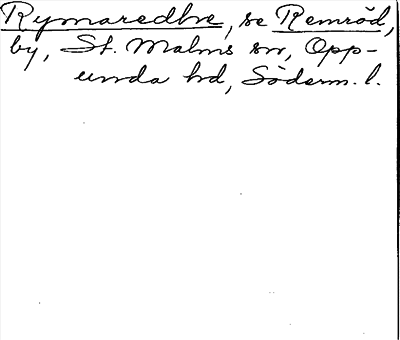 Rymaredhre, se Remröd,
by, St. Malms sn, Opp-
unda hd, Söderm. l.